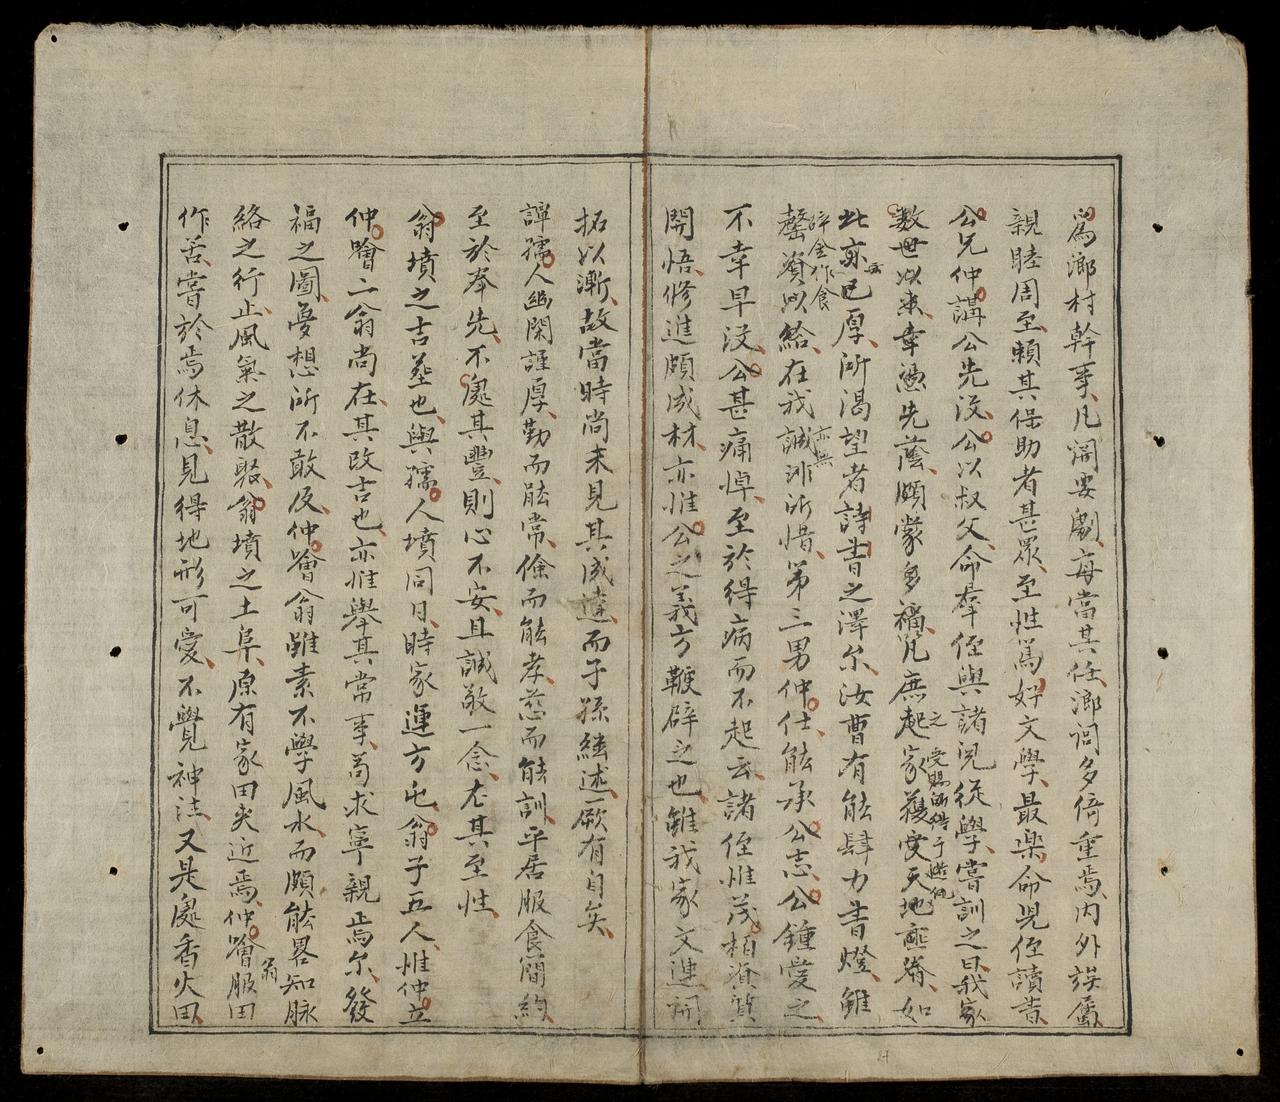 爲鄉村幹事凡開安劇每當其任鄉詞多倚重焉内外族屬
親睦周至賴其保助者甚眾至性篤好文學最樂命児侄讀書
公兄仲講公先没公以叔父命羣侄與諸児從學嘗訓之曰我家
数世以來幸憑先蔭頗蒙多福凢庶起家獲受天地座眷如
之受賜所得于
此亦已厚所渴望者詩書之澤尔汝曹有能肆力書燈雖
罄資以給在我誠非所惜第三男仲仕能承公志公鍾愛之
碎金作食
亦無
不幸早没公甚痛悼至於得病而不起云諸侄惟茂栢資質
開悟修進頗成材亦惟公之義方鞭辟之也雖我家文運
拓以漸故當時尚未見其成達而子孫繼述厥有自矣
諱孺人幽閑謹厚勤而能常儉而能孝慈而能訓平居服食簡約
至於奉先不處其豐則心不安且誠敬一念尤其至性
翁墳之古墓也與孺人墳同日時家運方屯翁子五人惟仲立
仲噲二翁尚在其改吉也亦惟舉其常事苟求寧親焉尔發
福之圖夢想所不敢及仲噲翁雖素不學風水而頗能畧知脉
絡之行止風氣之散聚翁墳之土阜原有家田夾近焉仲噲服田
翁
作苦嘗於焉休息見得地形可愛不覺神注又是處香火田